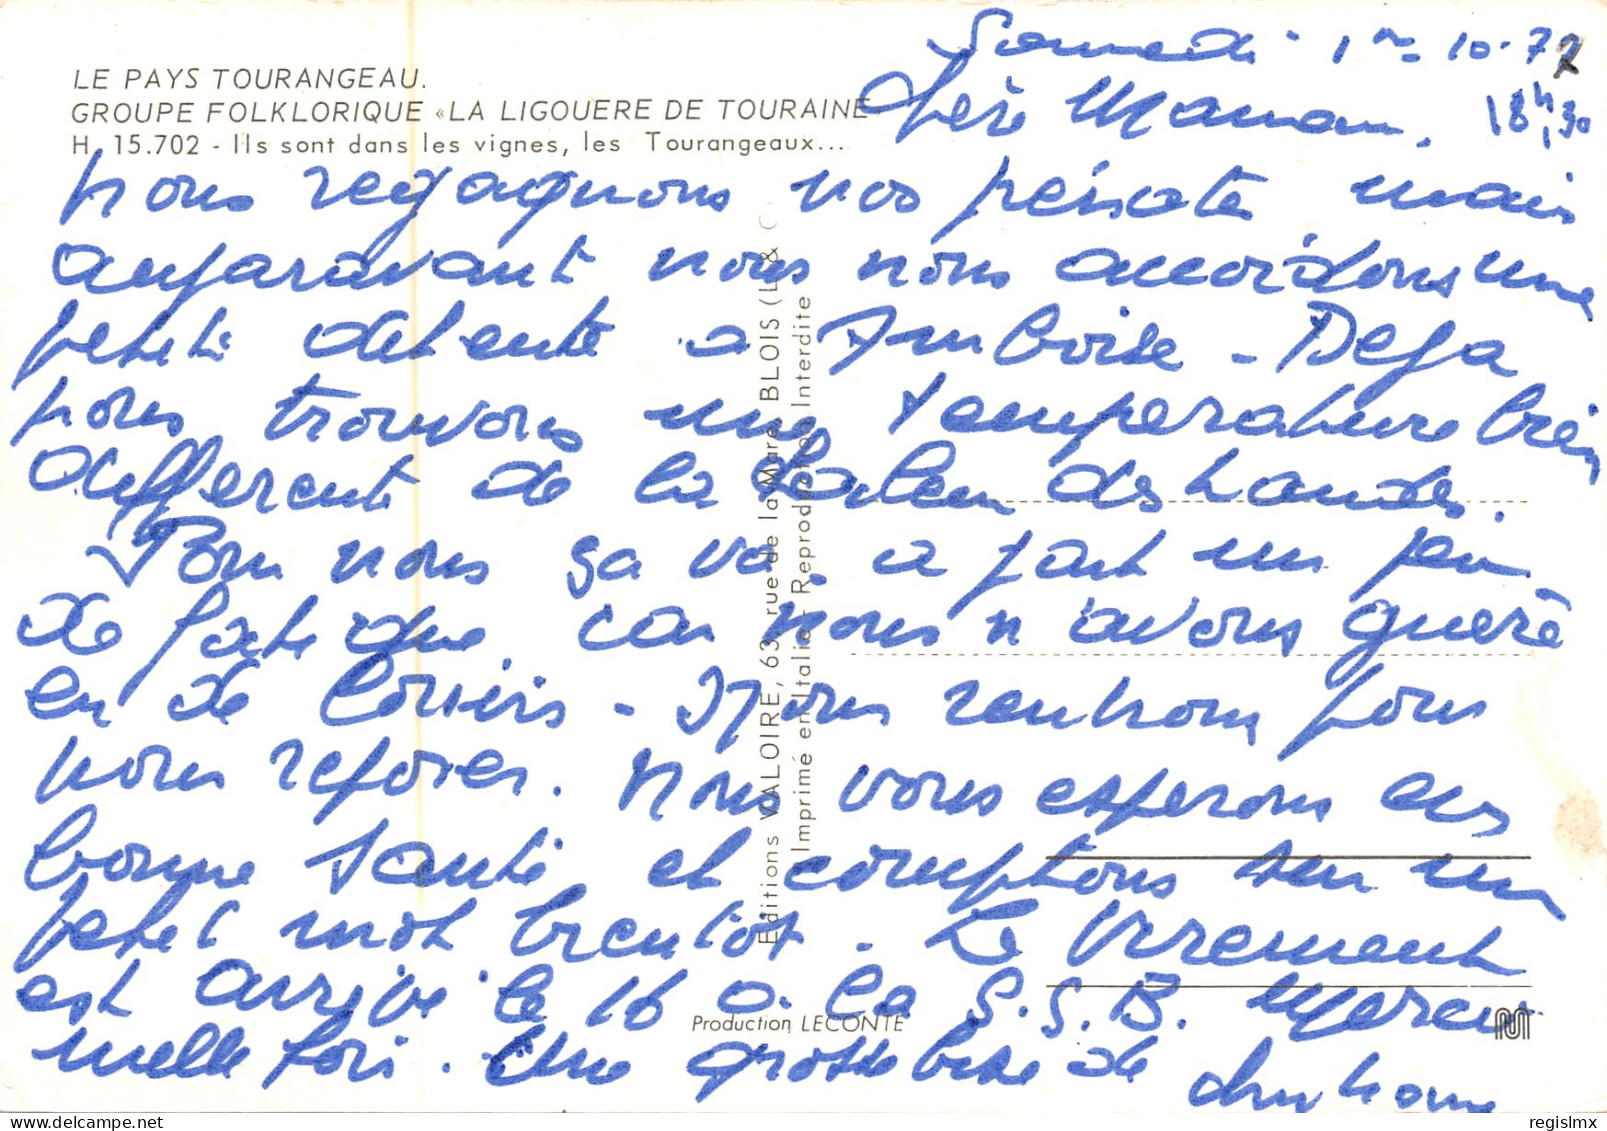 LE PAYS TOURANGEAU.
GROUPE FOLKLORIQUE «LA LIGOUERE DE TOURAINE
H. 15.702 - Ils sont dans les vignes, les Tourangeaux...
Samedi 1er 10-77
Chère Maman. 18h,30
nous regagnons nos pénates mais
auparavant nous nous accordons une
petite détente a Amboise - Deja
nous trouvons une temperature bien
differente de la chaleur des Landes.
Pour nous ça va. a part un peu
de fatigue car nous n'avons guère
eu de loisirs - Nous rentrons pour
nous reposer. Nous vous esperons en
bonne santé et comptons sur un
petit mot bientôt. Le Virement
est arrivé le 16 a la S.G.B. Merci
mille fois. Une grosse bise de
Editions VALOIRE, 63, rue de la Mare, BLOIS (L. & C
Imprimé en Italie - Reproduction Interdite
Production LECONTE
delcampe.net
regislmx